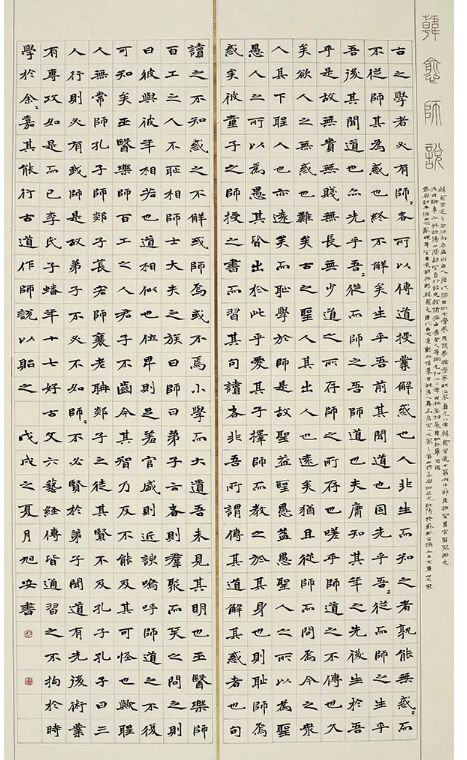 韓愈師說
古之學者必有師〻者所以傳道授業解惑也人非生而知之者孰能無惑〻而
不從師其為惑也終不解矣生乎吾前其聞道也固先乎吾〻從而師之生乎
吾後其聞道也亦先乎吾從而師之吾師道也夫庸知其年之先後生於吾
乎是故無貴無賤無長無少道之所存師之所存也嗟乎師道之不傳也久
矣欲人之無惑也難矣古之聖人其出人也遠矣猶且從師而問焉今之衆
人其下聖人也亦遠矣而恥學於師是故聖益聖愚益愚聖人之所以為聖
愚人之所以為愚其皆出於此乎愛其子擇師而教之於其身也則恥師焉
惑矣彼童子之師授之書而習其句讀者非吾所謂傳其道解其惑者也句
讀之不知惑之不解或師焉或不焉小學而大遺吾未見其明也巫醫樂師
百工之人不恥相師士大夫之族曰師曰弟子云者則羣聚而笑之問之則
曰彼與彼年相若也道相似也位卑則足羞官盛則近諛嗚呼師道之不復
可知矣巫醫樂師百工之人君子不齒今其智乃反不能及其可怪也歟聖
人無常師孔子師郯子萇弘師襄老聃郯子之徒其賢不及孔子孔子曰三
人行則必有我師是故弟子不必不如師〻不必賢於弟子聞道有先後術業
有專攻如是而已李氏子蟠年十七好古文六藝經傳皆通習之不拘於時
學於余〻嘉其能行古道作師說以貽之 戊戌之夏月旭安書